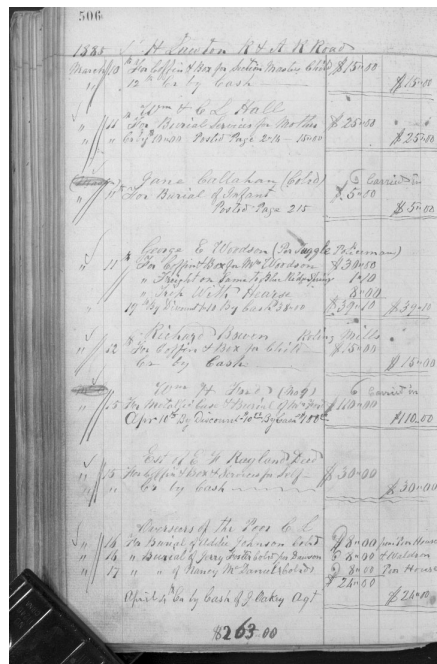 506
1885 H Lawton R & A R Road
March 10 For Coffin & Box for Section Child $15=00
" 12th Cr by Cash $15=00
Wm & C L Hall
" 11 For Burial Services for Mother $25=00
" Posted Page 15=00 $25=00
Jane Callahan (Cold) Carried in
" 11 For Burial of Infant $5=00
Posted Page 215 $5=00
George E Woodson
" 11 For Coffin & Box for Mrs Woodson $30=00
" Freight on Same to Blue Ridge Springs 1=10
" Trip With Hearse 8=00
" 17th By Discount By Cash 38=10 $39=10 $39=10
Richard Bowen Roling Mills
" 12 For Coffin & Box for Child $15=00
Cr by Cash $15=00
Wm H Carried in
" 15 For Metalic Case & Burial of Mrs $110=00
Apr 10th By Discount 10 By Cash 100 $110=00
Est of Ragland
" 15 For Coffin & Box & Services for Self $30=00
" Cr by Cash $30=00
Overseers of the Poor C L
" 16 For Burial of Addie Johnson Cold $8=00 Pen House
" 16 " Burial of Jerry Foster Cold for Dawson 8=00 & Waldron
" 17 " " of Nancy McDaniel (Cold) 8=00 Pen House
$24=00
April 4th Cr by Cash of J Oakey Agt $24=00
$263.00